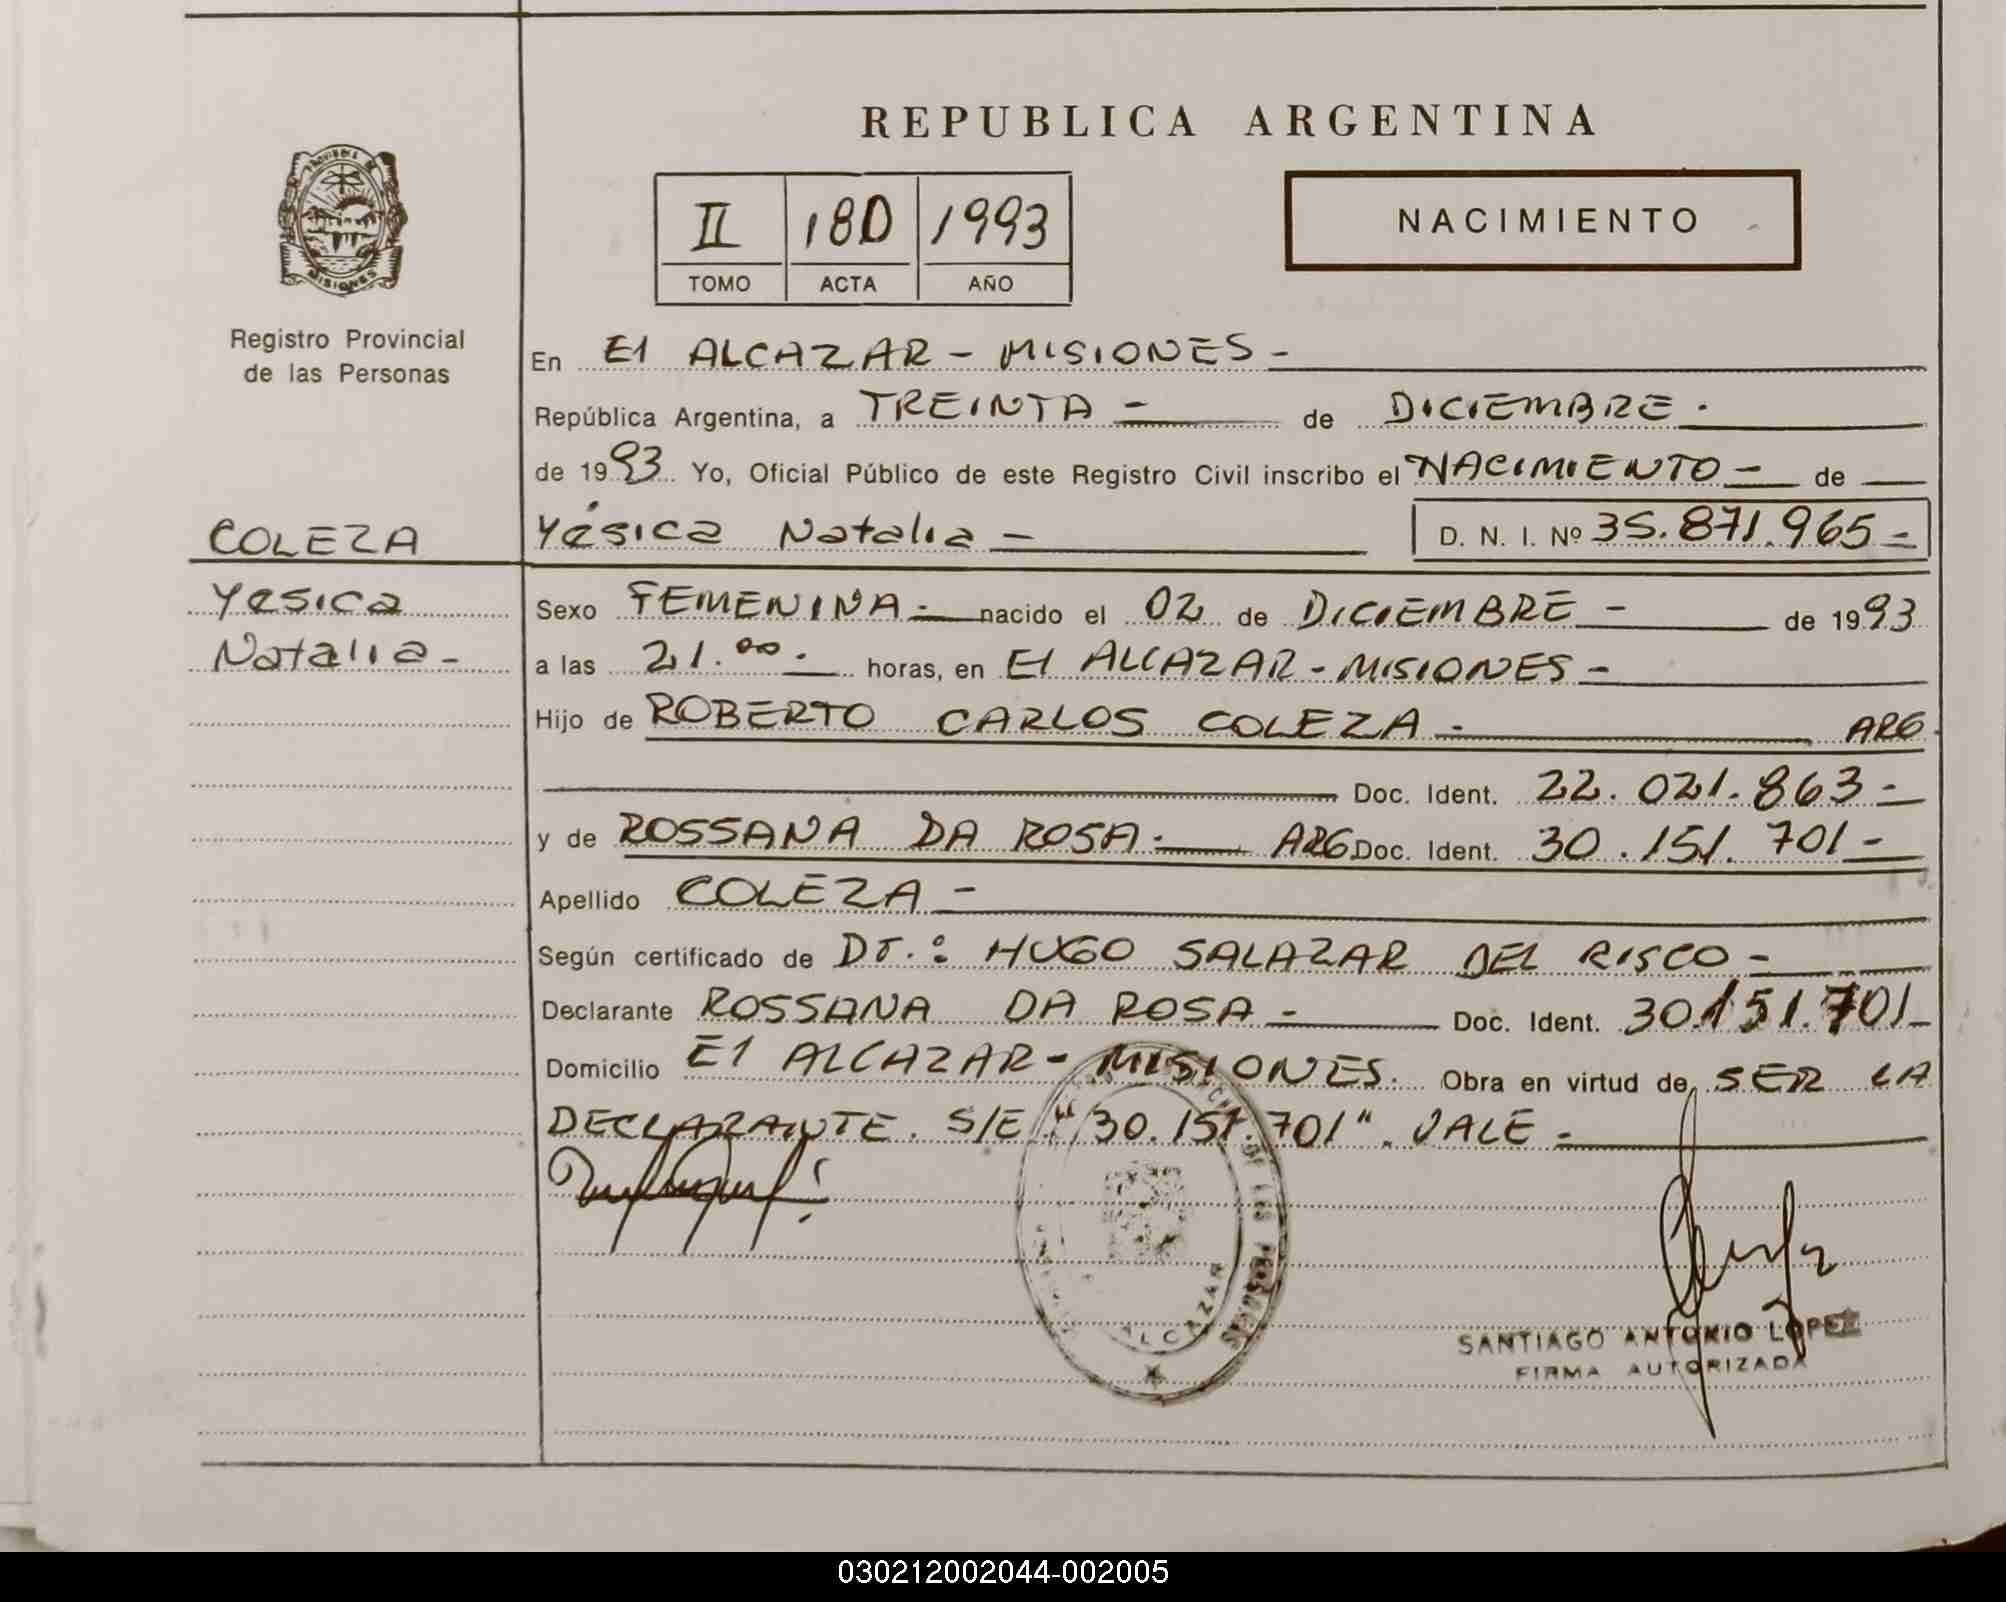 REPUBLICA ARGENTINA
PROVINCIA DE
MISIONES
Registro Provincial
de las Personas
II 180 1993
TOMO ACTA AÑO
NACIMIENTO
En El ALCAZAR - MISIONES -
República Argentina, a TREINTA - de DICIEMBRE.
de 1993 Yo, Oficial Público de este Registro Civil inscribo el NACIMIENTO - de
COLEZA
Yésica Natalia - D. N. I. Nº 35.871.965 -
Yesica
Natalia -
Sexo FEMENINA - nacido el 02 de DICIEMBRE - de 1993
a las 21.00. horas, en El ALCAZAR - MISIONES -
Hijo de ROBERTO CARLOS COLEZA - ARG.
Doc. Ident. 22.021.863 -
y de ROSSANA DA ROSA - ARG Doc. Ident. 30.151.701 -
Apellido COLEZA -
Según certificado de Dr.: HUGO SALAZAR DEL RISCO -
Declarante ROSSANA DA ROSA - Doc. Ident. 30.151.701 -
Domicilio El ALCAZAR - MISIONES. Obra en virtud de SER LA
DECLARANTE. S/E "30.151.701". VALE -
DE LAS PERSONAS
ALCAZAR
SANTIAGO ANTONIO LOPEZ
FIRMA AUTORIZADA
030212002044-002005